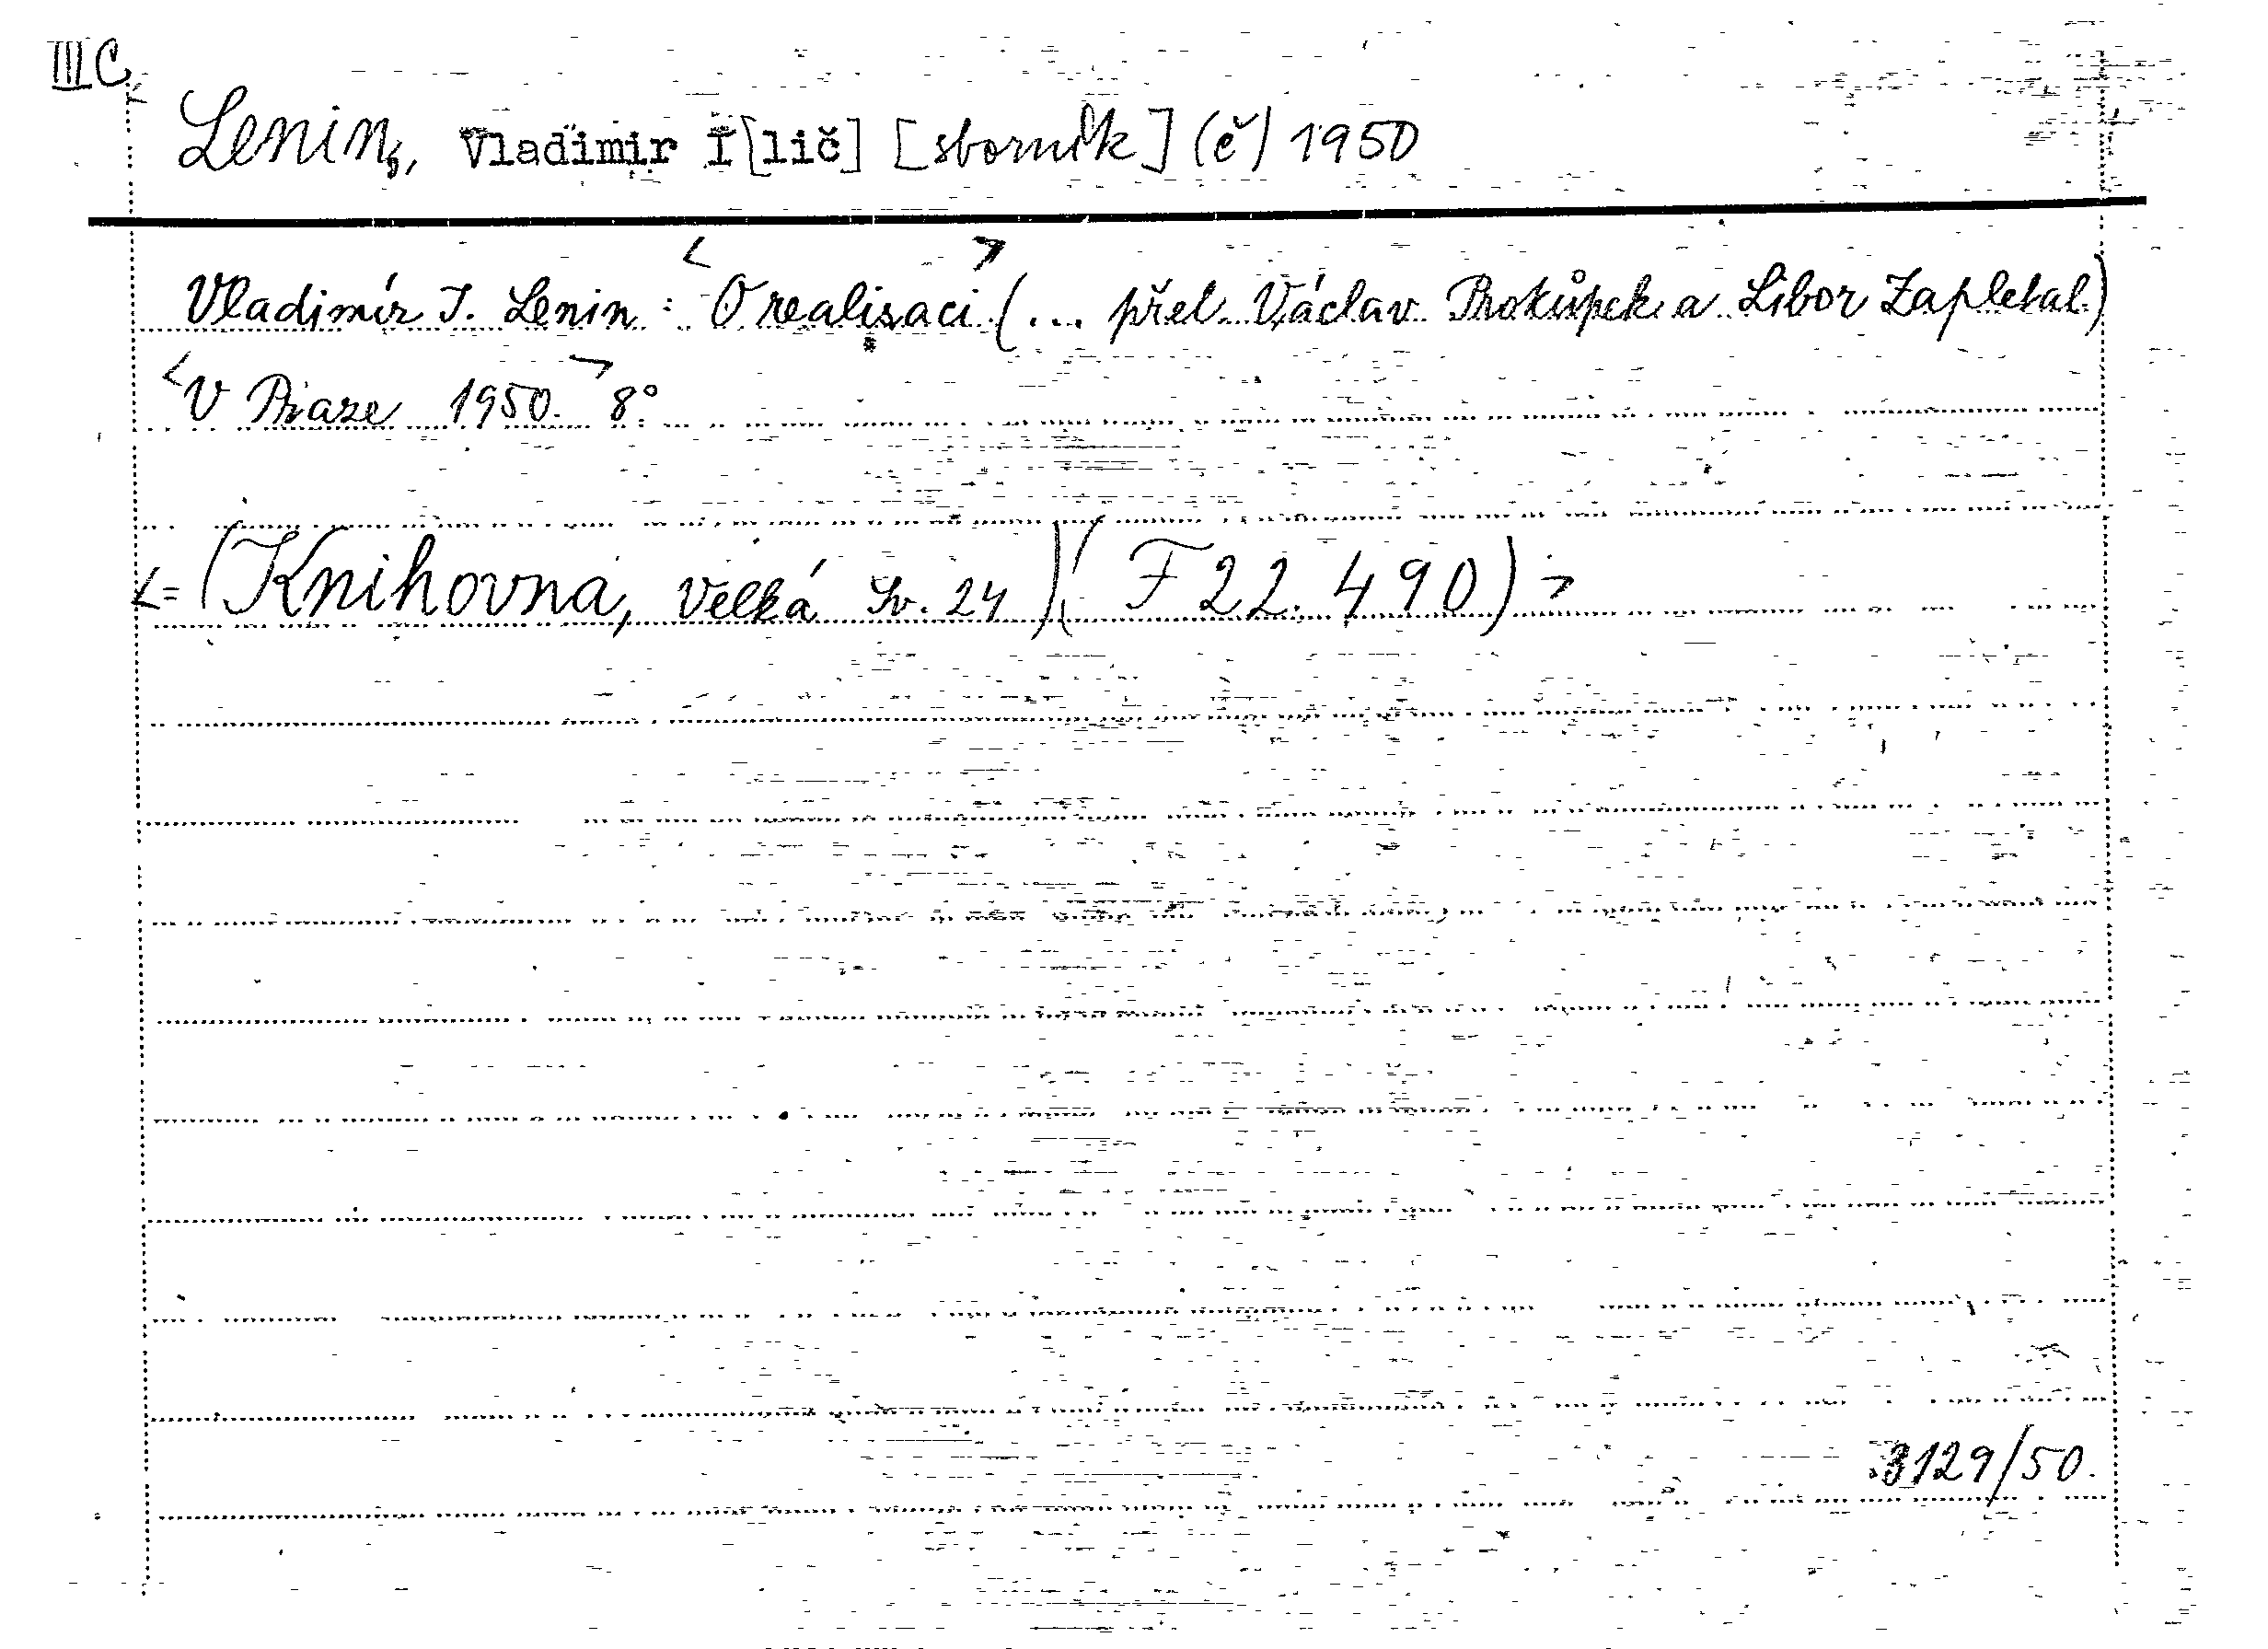 III C
Lenin, Vladimir I[lič] [sborník] (č) 1950
Vladimír I. Lenin: <O realisaci> (... přel. Václav Prokůpek a Libor Zapletal.)
<V Praze 1950.> 8°.
<= (Knihovna, Velká Sv. 24) (F 22.490)>
3129/50.